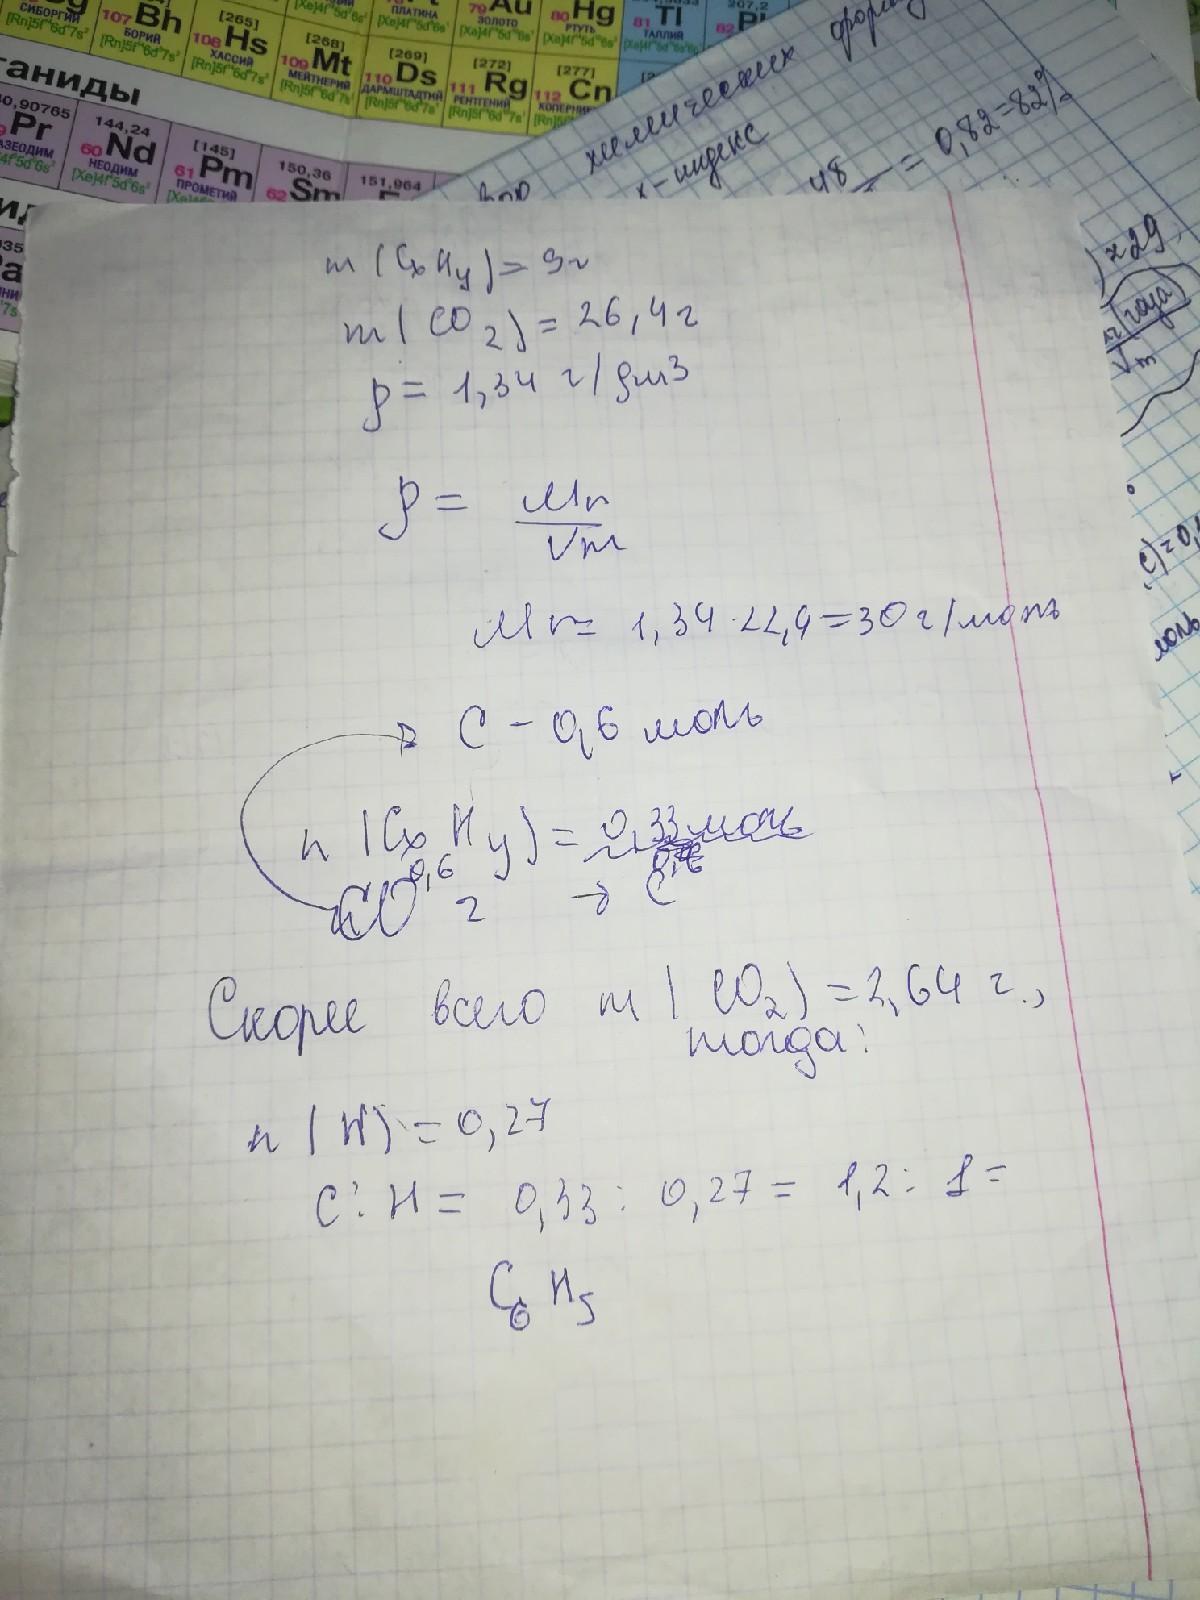 СИБОРГИЙ
[Rn]5f¹⁴6d⁴7s²
107 Bh
БОРИЙ
[Rn]5f¹⁴6d⁵7s²
[265]
108 Hs
ХАССИЙ
[Rn]5f¹⁴6d⁶7s²
[268]
109 Mt
МЕЙТНЕРИЙ
[Rn]5f¹⁴6d⁷7s²
ПЛАТИНА
[269]
110 Ds
ДАРМШТАДТИЙ
79 Au
ЗОЛОТО
[272]
111 Rg
РЕНТГЕНИЙ
80 Hg
РТУТЬ
[277]
112 Cn
81 Tl
ТАЛЛИЙ
207,2
82
0,90765
Pr
144,24
60 Nd
НЕОДИМ
[Xe]4f⁴5d⁰6s²
[145]
61 Pm
ПРОМЕТИЙ
150,36
62 Sm
151,964
химических
x-индекс
48
= 0,82=82%
m(CxHy)= 9г
m(CO2)= 26,4г
ρ= 1,34 г/дм3
ρ= Mr
Vm
Mr= 1,34·22,4=30г/моль
C - 0,6 моль
n(CxHy)= 0,33моль
0,6
CO2 → C
Скорее всего m(CO2)=2,64 г.,
тогда:
n(H)=0,27
C:H= 0,33: 0,27= 1,2: 1=
C6H5